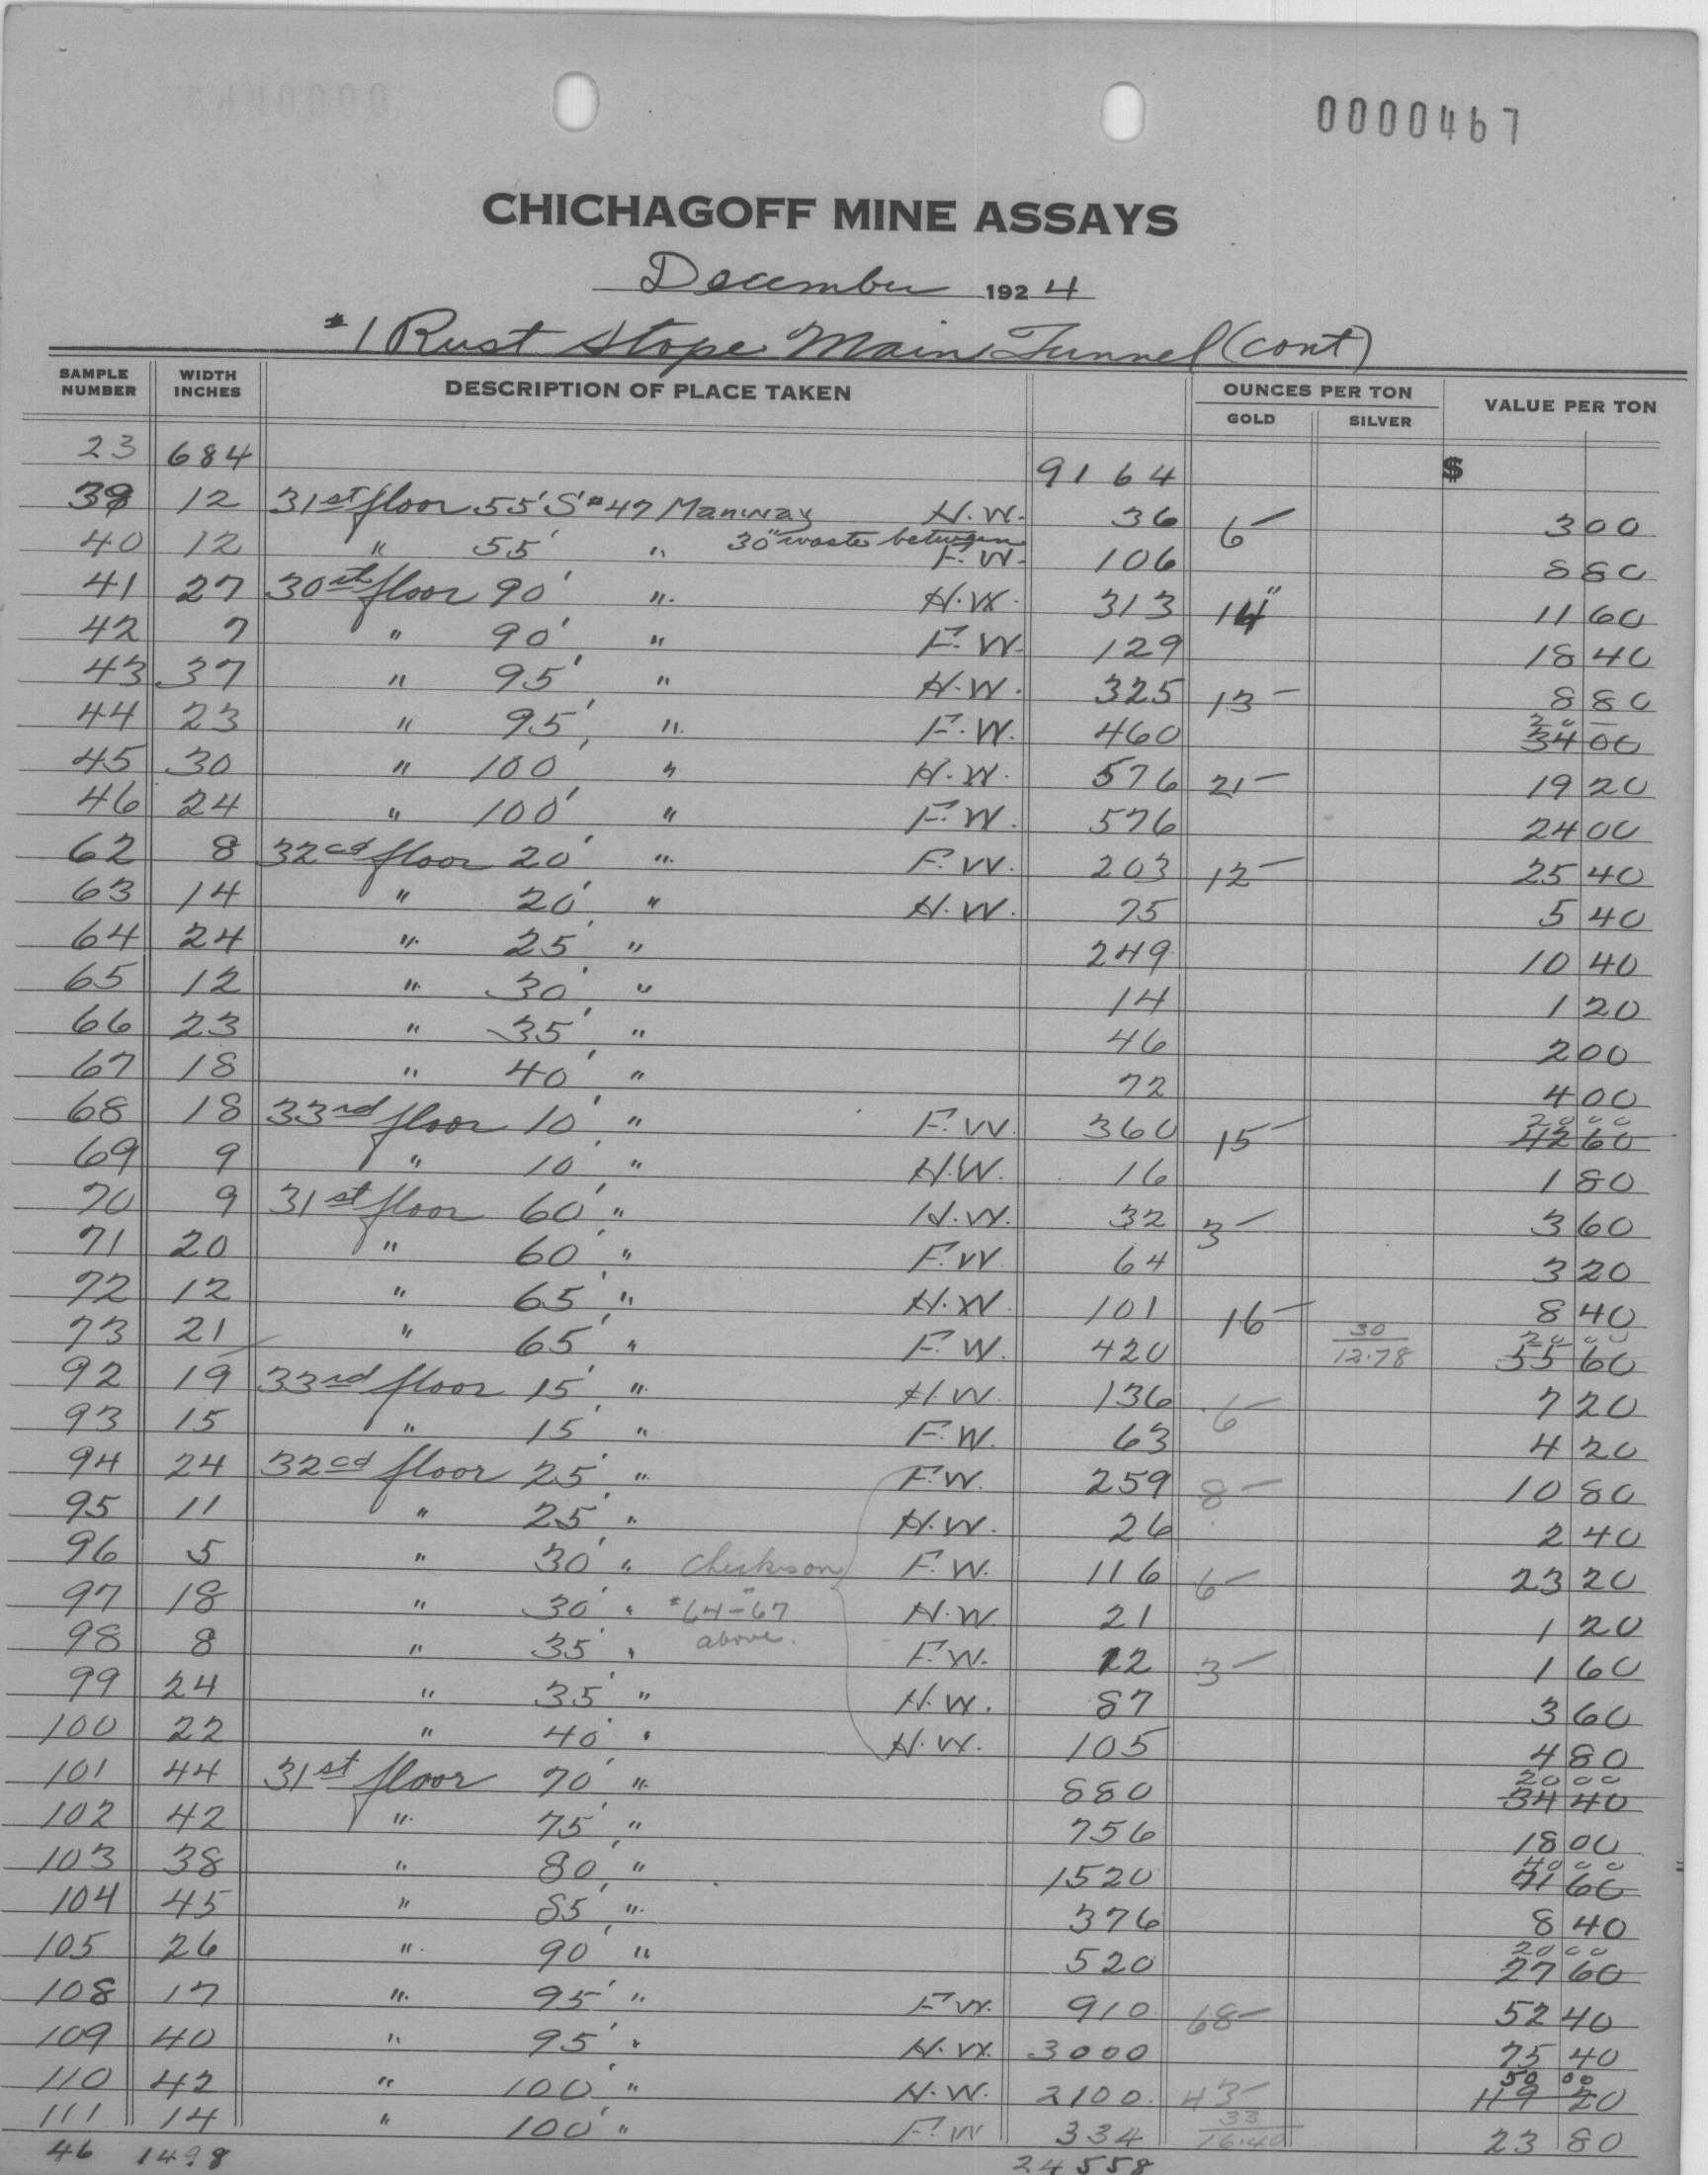 0000467
CHICHAGOFF MINE ASSAYS
December 1924
#1 Rust Stope Main Tunnel (cont)
SAMPLE NUMBER WIDTH INCHES DESCRIPTION OF PLACE TAKEN OUNCES PER TON GOLD SILVER VALUE PER TON
23 684 9164 $
39 12 31st floor 55' S #47 Manway H.W. 36 6- 3 00
40 12 " 55' " 30" waste between F.W. 106 8 80
41 27 30th floor 90' " H.W. 313 14" 11 60
42 7 " 90' " F.W. 129 18 40
43 37 " 95' " H.W. 325 13- 8 80
44 23 " 95' " F.W. 460 20 - 34 00
45 30 " 100' " H.W. 576 21- 19 20
46 24 " 100' " F.W. 576 24 00
62 8 32cd floor 20' " F.W. 203 12- 25 40
63 14 " 20' " H.W. 75 5 40
64 24 " 25' " 249 10 40
65 12 " 30' " 14 1 20
66 23 " 35' " 46 2 00
67 18 " 40' " 72 4 00
68 18 33rd floor 10' " F.W. 360 15- 20 00 42 60
69 9 " 10' " H.W. 16 1 80
70 9 31st floor 60' " H.W. 32 3- 3 60
71 20 " 60' " F.W. 64 3 20
72 12 " 65' " H.W. 101 16- 8 40
73 21 " 65' " F.W. 420 30 12.78 20 00 55 60
92 19 33rd floor 15' " H.W. 136 6- 7 20
93 15 " 15' " F.W. 63 4 20
94 24 32cd floor 25' " F.W. 259 8- 10 80
95 11 " 25' " H.W. 26 2 40
96 5 " 30' " Checks on F.W. 116 6- 23 20
97 18 " 30' " #64-67 H.W. 21 1 20
98 8 " 35' " above. F.W. 12 3- 1 60
99 24 " 35' " H.W. 87 3 60
100 22 " 40' " H.W. 105 4 80
101 44 31st floor 70' " 880 20 00 34 40
102 42 " 75' " 756 18 00
103 38 " 80' " 1520 40 00 71 60
104 45 " 85' " 376 8 40
105 26 " 90' " 520 20 00 27 60
108 17 " 95' " F.W. 910 68- 52 40
109 40 " 95' " H.W. 3000 75 40
110 42 " 100' " H.W. 2100 43- 50 00 119 20
111 14 " 100' " F.W. 334 33 16.40 23 80
46 1498 24558